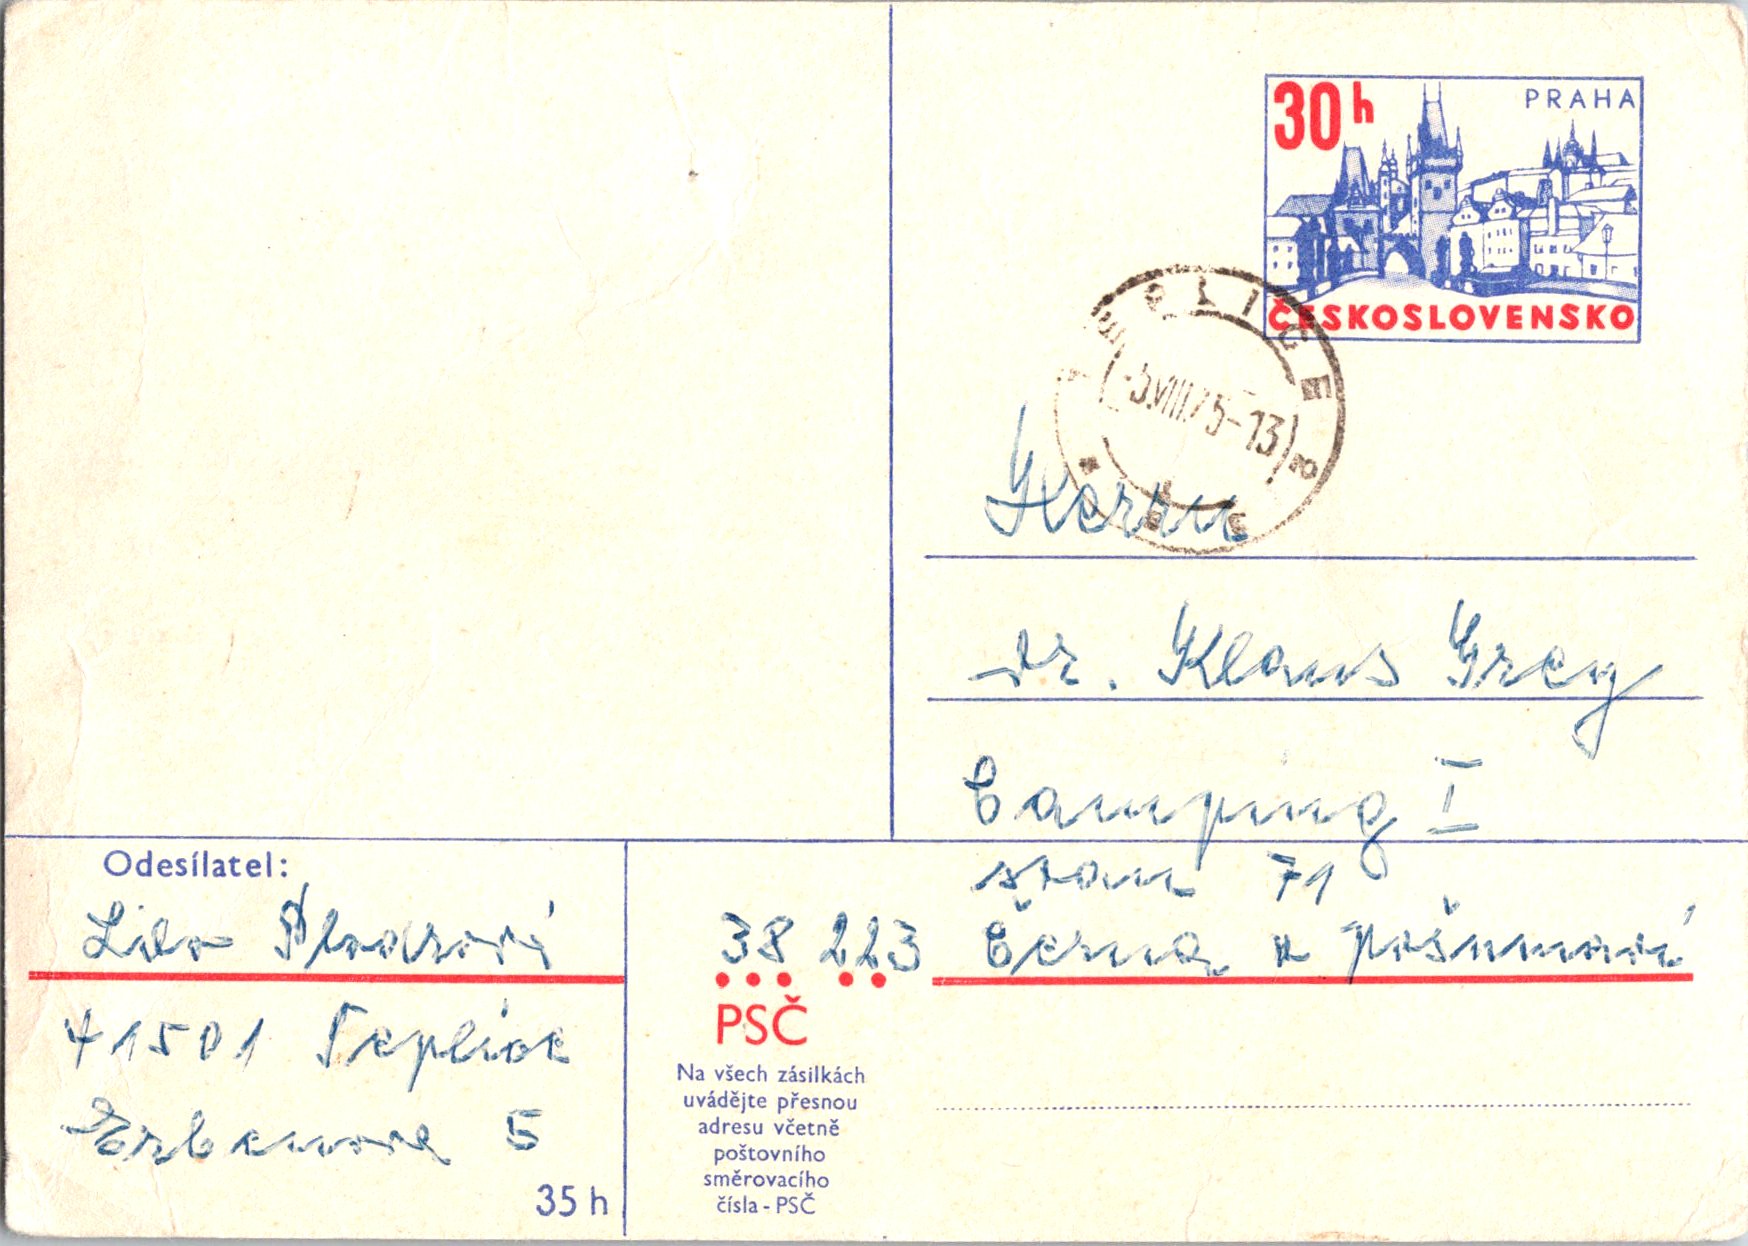 30h PRAHA
ČESKOSLOVENSKO
-5.VIII.75-13
Herrn
Dr. Klaus Grey
Camping I
stan 71
38 223 Černá v Pošumaví
PSČ
Na všech zásilkách
uvádějte přesnou
adresu včetně
poštovního
směrovacího
čísla - PSČ
Odesílatel:
41501 Teplice
5
35 h